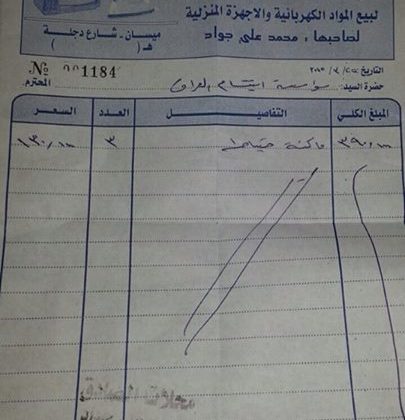 لبيع المواد الكهربائية والاجهزة المنزلية
لصاحبها ، محمد علي جواد
ميسان - شارع دجلة
هـ ( )
№ 1184
التاريخ
حضرة السيد: مؤسسة ايتام العراق المحترم
المبلغ الكلي التفاصيل العدد السعر
ماكنة خياطة ٣
محلات الصادق